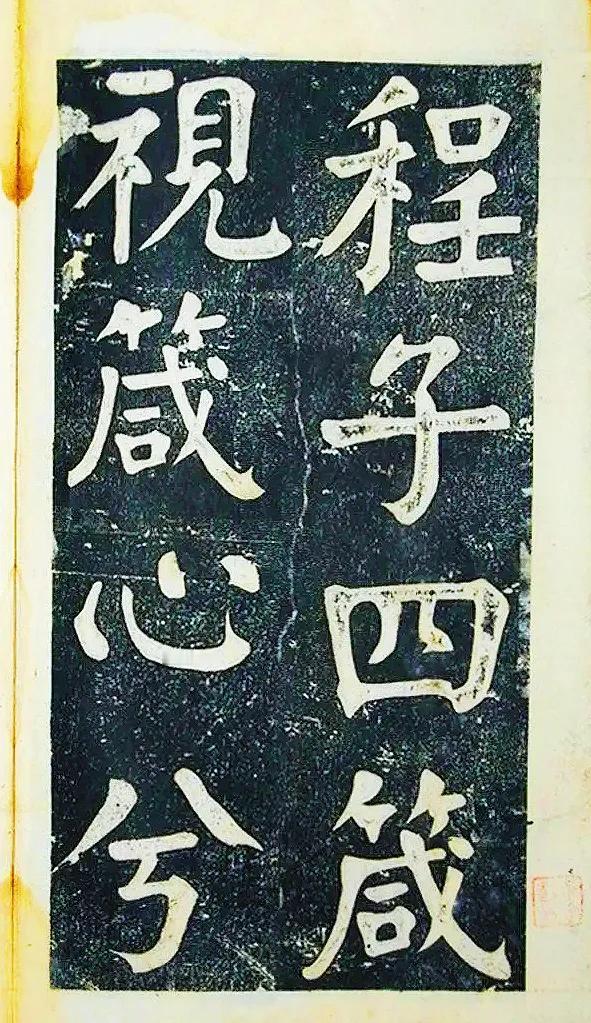 程子四箴
視箴心兮